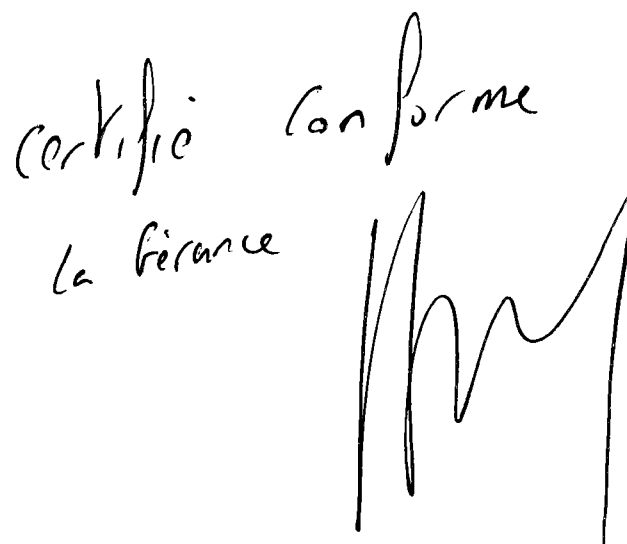 certifié conforme
la Gérance